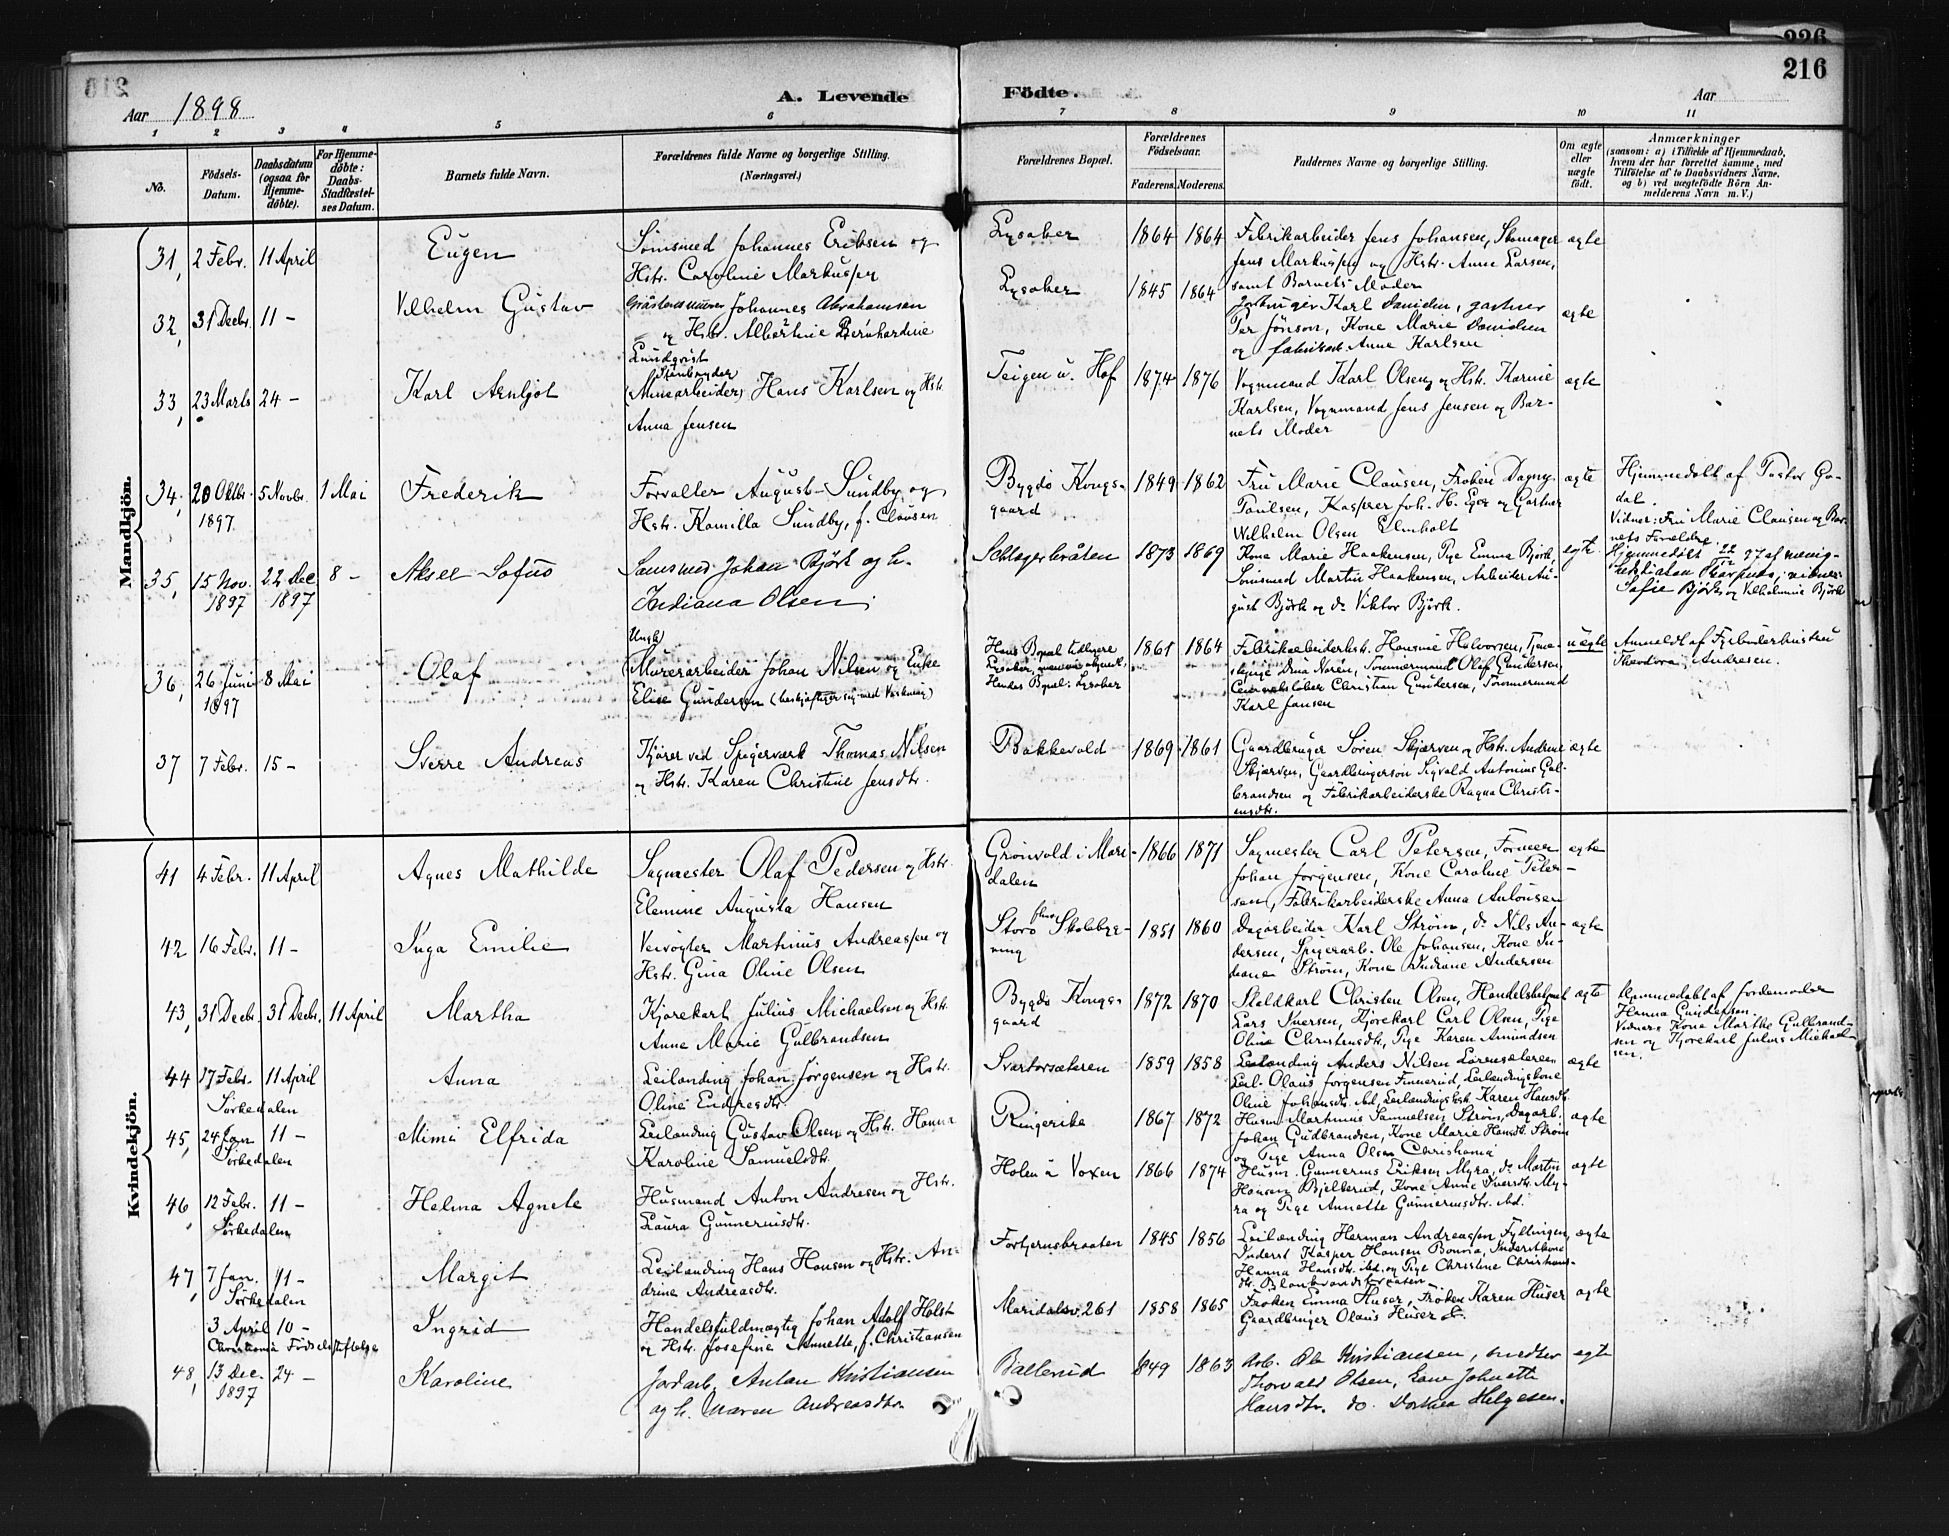 226
216
Aar 1898
A. Levende Födte.
Aar
1 2 3 4 5 6 7 8 9 10 11
No.
Födsels-Datum.
Daabsdatum (ogsaa for Hjemme-döbte).
For Hjemme-döbte: Daabs-Stadfæstel-ses Datum.
Barnets fulde Navn.
Forældrenes fulde Navne og borgerlige Stilling.
(Næringsvei.)
Forældrenes Bopæl.
Forældrenes Födselsaar.
Faderens. Moderens.
Faddernes Navne og borgerlige Stilling.
Om ægte eller uægte födt.
Anmærkninger
(saasom: a) i Tilfælde af Hjemmedaab,
hvem der har forrettet samme, med
Tilföielse af to Daabsvidners Navne,
og b) ved uægtefödte Börn An-
melderens Navn m. V.)
Mandkjön.
31, 2 Febr. 11 April
Eugen
Johannes Eriksen og
Hstr. Caroline Markussen
Lysaker 1864 1864
Fabrikarbeider Jens Johansen, Skomager
Jens Markussen og Hstr. Anne Larsen,
samt Barnets Moder
ægte
32, 31 Decbr. 11 -
Vilhelm Gustav
Johannes Abrahamsen
og Hstr. Albertine Bernhardine
Lundqvist
Lysaker 1845 1864
Jordbruger Karl Danielsen, gartner
Per Jönson, Kone Marie Danielsen
og fabrikarb. Anne Karlsen
ægte
33, 23 Marts 24 -
Karl Arnljot
Stenbryder
(Minearbeider) Hans Karlsen og Hstr.
Anna Jensen
Teigen u. Hof 1874 1876
Vognmand Karl Olsen og Hstr. Karine
Karlsen, Vognmand Jens Jensen og Bar-
nets Moder
ægte
34, 20 Oktbr. 1897. 5 Novbr. 1 Mai
Frederik
Forvalter August Sundby og
Hstr. Kamilla Sundby, f. Clausen
Bygdö Kongs-
gaard 1849 1862
Fru Marie Clausen, Fröken Dagny
Paulsen, Kasserer Joh. H. Eger og Gartner
Wilhelm Olsen Elmholt
ægte
Hjemmedöbt af Pastor Go-
dal.
Vidner: Fru Marie Clausen og Bar-
nets Forældre.
35, 15 Nov. 1897 22 Dec 1897 8 -
Aksel Sofus
Sömsmed Johan Björk og h.
Indiana Olsen
Schlagerbråten 1873 1869
Kone Marie Haakensen, Pige Emma Björk
Sömsmed Martin Haakensen, Arbeider Au-
gust Björk og do Viktor Björk.
egte.
Hjemmedöbt 22/12 97 af menig-
Sofie Björk og Vilhelmine Björk
36, 26 Juni 1897 8 Mai
Olaf
Ungk
Murerarbeider Johan Nilsen og Enke
Elise Gundersen (beskjæftiger sig med Vaskning)
Hans Bopæl tidligere
Lysaker,
Hendes Bopæl: Lysaker
1861 1864
Fabrikarbeiderhstr. Hansine Halvorsen, Tjene-
stepige Dina Noren, Tömmermand Olaf Gundersen,
Christian Gundersen, Tömmermand
Karl Jansen
uægte
Anmeldt af Fyrböderhustru
Theodora Andresen.
37 7 Febr. 15 -
Sverre Andreas
Kjörer ved Spigerverk Thomas Nilsen
og Hstr. Karen Christine Jensdtr.
Bakkevold 1869 1861
Gaardbruger Sören Skjærven og Hstr. Andrine
Skjærven, Gaardbrugersön Sigvald Antonius Gul-
brandsen og Fabrikarbeiderske Ragna Christi-
ansdtr.
ægte
Kvindekjön.
41 4 Febr. 11 April
Agnes Mathilde
Sagmester Olaf Pedersen og Hstr.
Elemine Augusta Hansen
Grönvold i Mari-
dalen 1866 1871
Sagmester Carl Petersen, Former
Johan Jörgensen, Kone Caroline Peter-
sen, Fabrikarbeiderske Anna Antonsen
ægte
42 16 Febr. 11 -
Inga Emilie
Veivogter Martinus Andreassen og
Hstr. Gina Oline Olsen
Storö Skolebyg-
ning 1851 1860
Dagarbeider Karl Ström, do Nils An-
dersen, Spigerarb. Ole Johansen, Kone In-
diane Ström, Kone Indiane Andersen
ægte
43, 31 Decbr. 31 Decbr. 11 April
Martha
Kjörekarl Julius Michaelsen og Hstr.
Anne Marie Gulbrandsen
Bygdö Kongs-
gaard 1872 1870
Staldkarl Christen Olsen, Handelsbetjent
Lars Iversen, Kjörekarl Carl Olsen, Pige
Oline Christensdtr, Pige Karen Amundsen
ægte
Hjemmedöbt af Jordemoder
Hanna Gundersen.
Vidner: Kone Marthe Gulbrand-
sen og Kjörekarl Julius Michael-
sen.
44 17 Febr. 11 April
Sörkedalen
Anna
Leilænding Johan Jörgensen og Hstr.
Oline Endresdtr.
Svartorsæteren 1859 1858
Leilænding Anders Nilsen
Leil. Olaus Jörgensen Finnerud, Leilændingskone
Oline Johansdtr. ibd, Karen Hansdtr.
ægte
45, 24 Jan 11 -
Sörkedalen
Mimi Elfrida
Leilænding Gustav Olsen og Hstr. Hanna
Karoline Samuelsdtr.
Ringerike 1867 1872
Husm. Martinus Samuelsen Ström, Dagarb.
Johan Gudbrandsen, Kone Marie Hansdtr. Ström
og Pige Anna Olsen Christiania
ægte
46, 12 Febr. 11 -
Sörkedalen
Helma Agnete
Husmand Anton Andresen og Hstr.
Laura Gunneriusdtr.
Holen u Voxen 1866 1874
Husm. Gunnerius Eriksen Myra, do Martin
Hansen Bjellerud, Kone Anne Iversdtr. My-
ra og Pige Annette Gunneriusdtr. ibd.
ægte
47, 7 Jan. 11 -
Sörkedalen
Margit
Leilænding Hans Hansen og Hstr. An-
drine Andreasdtr.
Fortjernsbraaten 1845 1856
Leilænding Herman Andreassen Fyllingen,
Inderst Kasper Hansen Bonna, Inderstkone
Hanna Hansdtr. ibd. og Pige Christine Christians-
dtr. Blankvandsbraaten
ægte
3 April 10 -
Christiania Födselsstiftelse
Ingrid
Handelsfuldmægtig Johan Adolf Holst
og Hstr. Josefine Annette, f. Christiansen
Maridalsv. 261 1858 1865
Fröken Emma Huser, Fröken Karen Huser
Gaardbruger Olaus Huser
ægte
48, 13 Dec. 1897 24 -
Karoline
Jordarb. Anton Kristiansen
og h. Maren Andreasdtr
Ballerud 1849 1863
Arb. Ole Kristiansen, smedter
Thorvald Olsen, kone Johnette
Hansdtr. do. Dorthea Helgesen.
egte